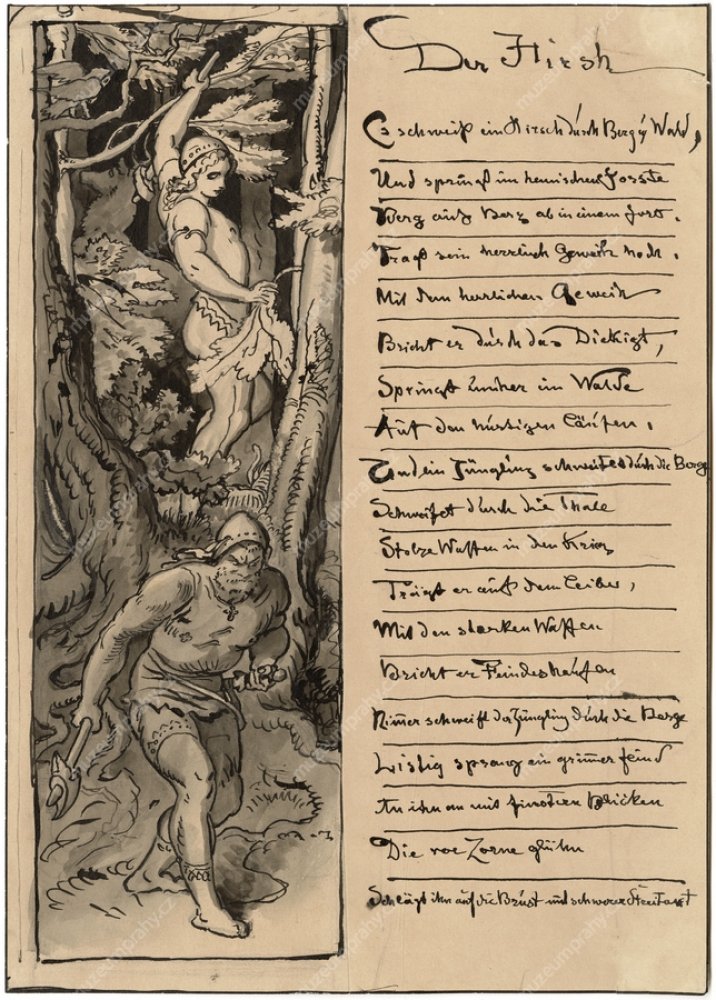 Der Hirsh
Es schweift ein Hirsch durch Berg u Wald,
Und springt im heimischen Forste
Berg auf, Berg ab in einem fort.
Tragt sein herrlich Geweih hoch.
Mit dem herrlichen Geweih
Bricht er durch das Dickigt,
Springt umher im Walde
Auf den hurtigen Läufen.
Und ein Jüngling schweifet durch die Berge
Schweifet durch die Thale
Stolze Waffen in den Krieg
Trägt er auf dem Leibe,
Mit den starken Waffen
Bricht er Feindeshaufen
Nim̅er schweift der Jüngling durch die Berge
Listig sprang ein grim̅er feind
An ihn an mit finstern Blicken
Die vor Zorne glühn
Schlägt ihn auf die Brust mit schwerer Streitaxt
muzeumprahy.cz